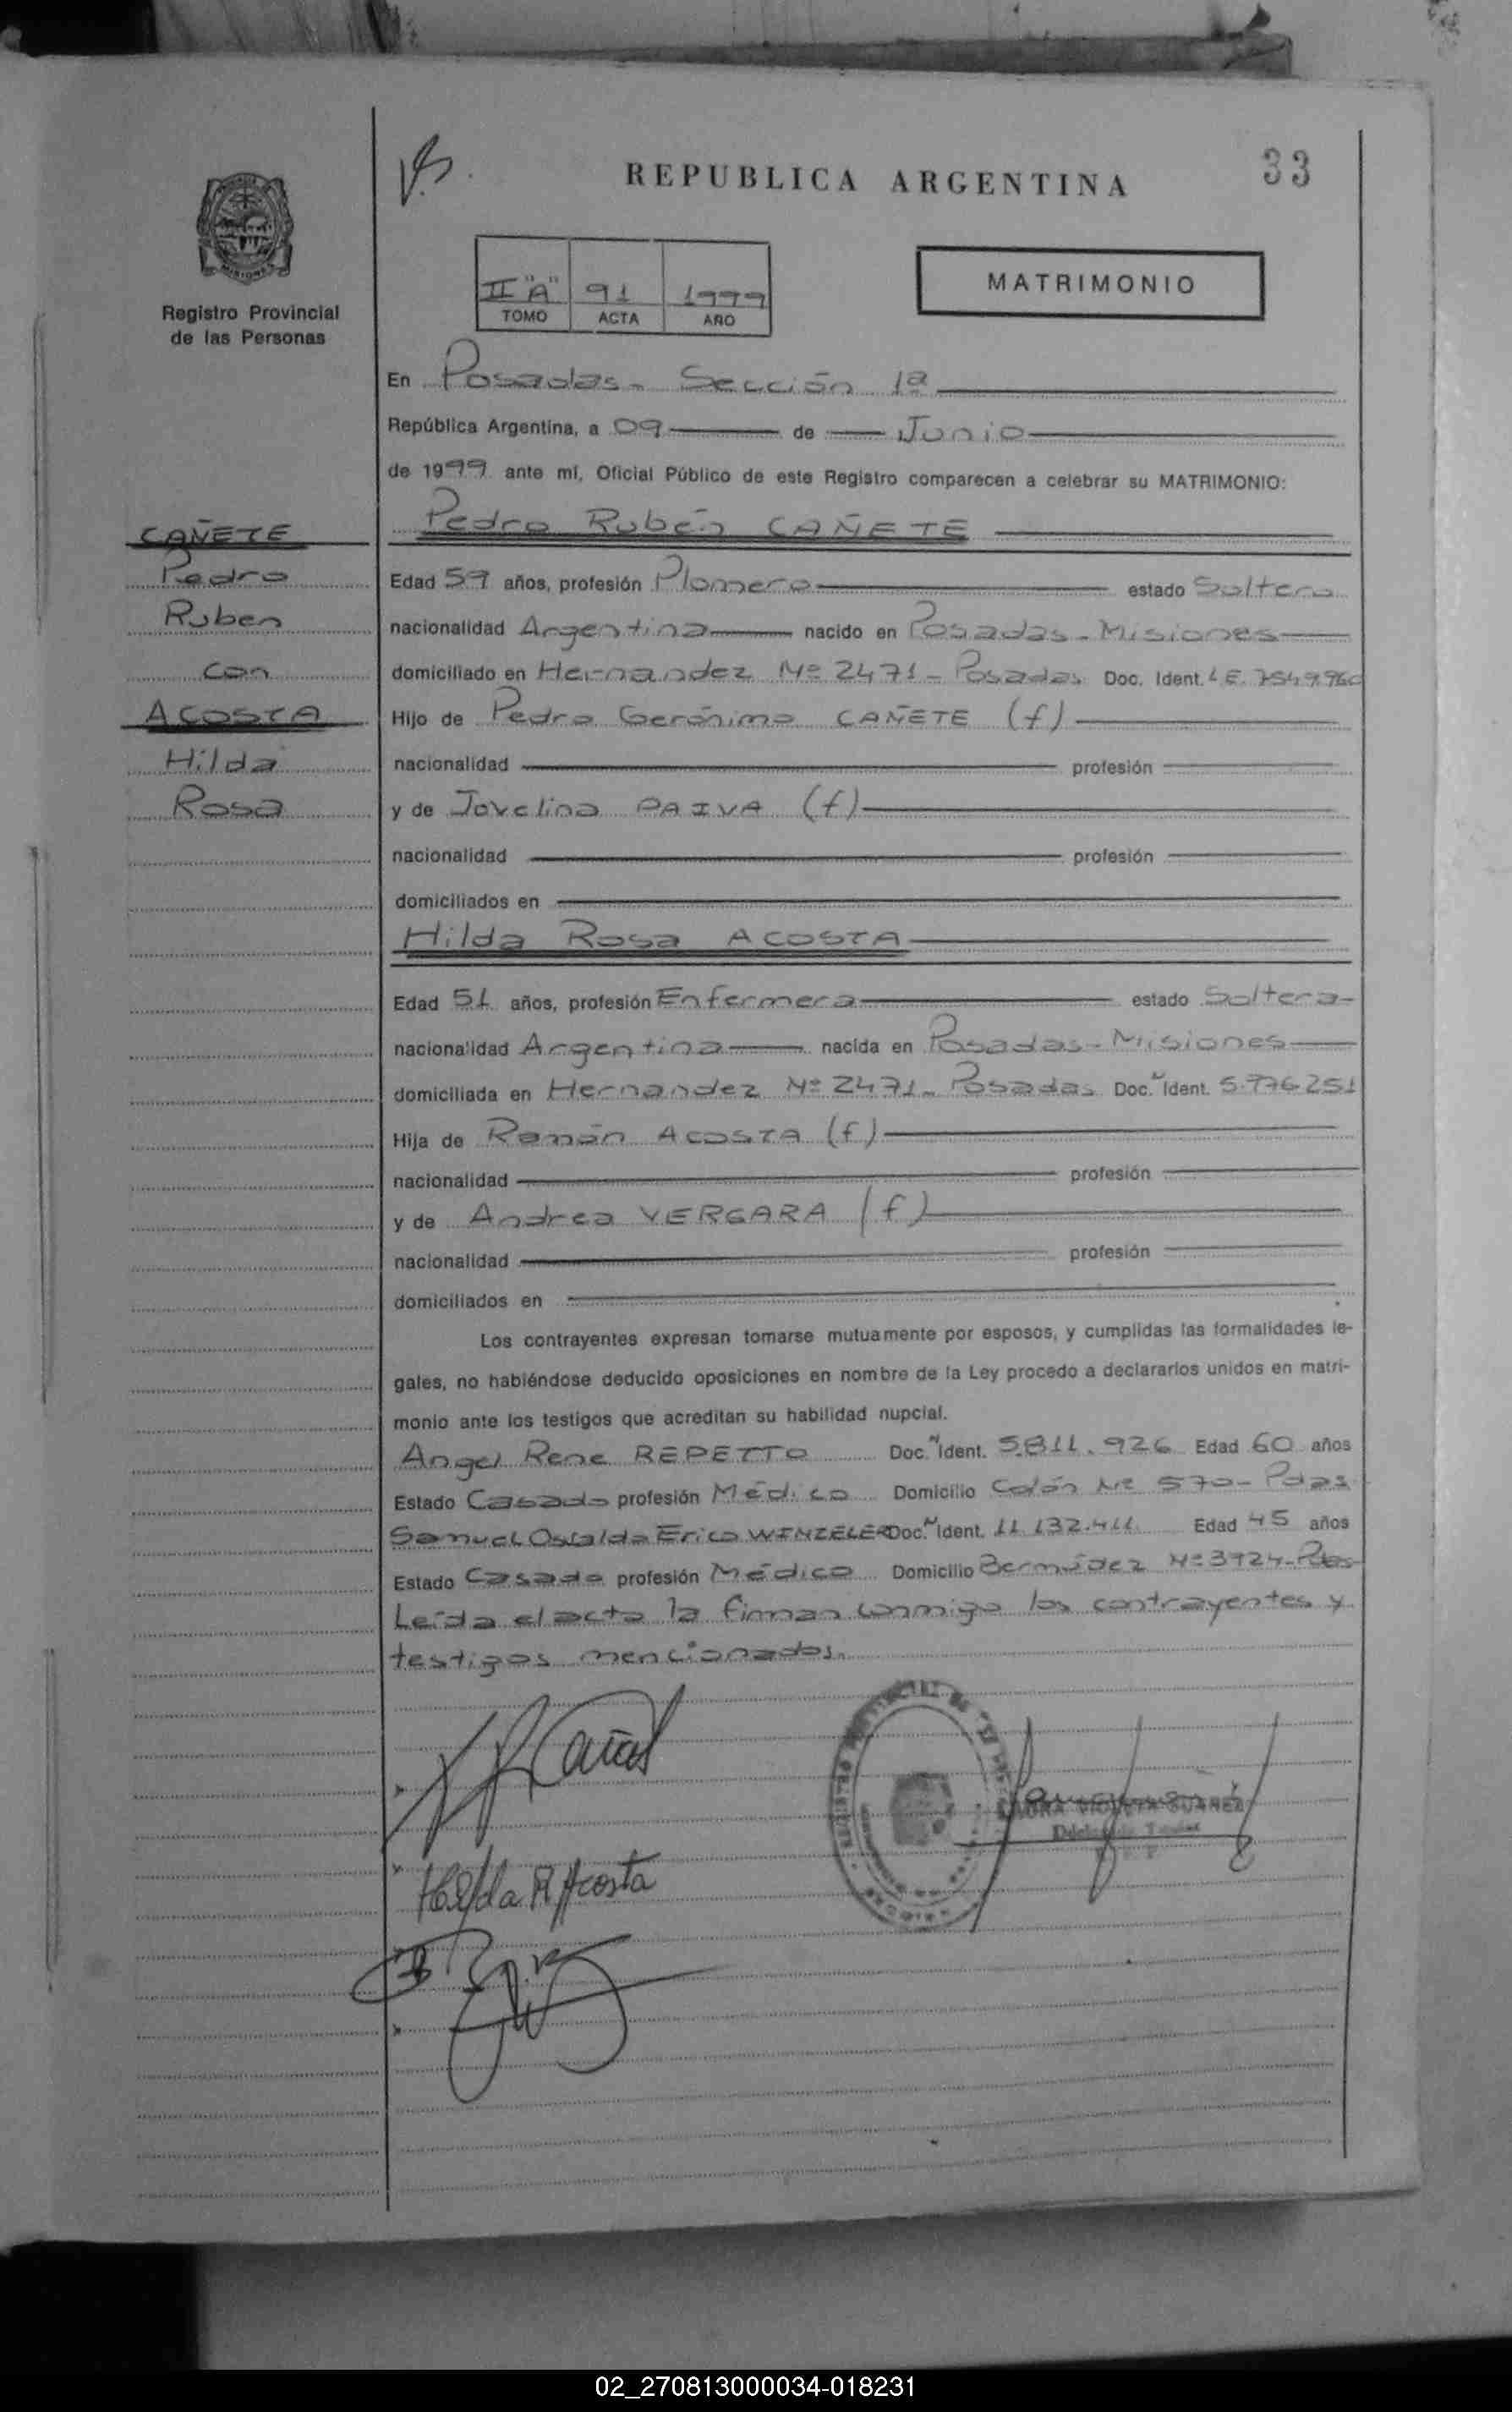 33
REPUBLICA ARGENTINA
MISIONES
Registro Provincial
de las Personas
II "A" 91 1999
TOMO ACTA AÑO
MATRIMONIO
En Posadas - Sección 1ª
República Argentina, a 09 de Junio
de 1999 ante mí, Oficial Público de este Registro comparecen a celebrar su MATRIMONIO:
CAÑETE
Pedro
Ruben
con
ACOSTA
Hilda
Rosa
Pedro Rubén CAÑETE
Edad 59 años, profesión Plomero estado Soltero
nacionalidad Argentina nacido en Posadas - Misiones
domiciliado en Hernandez Nº 2471 - Posadas Doc. Ident. L.E. 7.549.960
Hijo de Pedro Gerónimo CAÑETE (f)
nacionalidad profesión
y de Jovelina PAIVA (f)
nacionalidad profesión
domiciliados en
Hilda Rosa ACOSTA
Edad 51 años, profesión Enfermera estado Soltera
nacionalidad Argentina nacida en Posadas - Misiones
domiciliada en Hernandez Nº 2471 - Posadas Doc. Ident. 5.776251
Hija de Ramón ACOSTA (f)
nacionalidad profesión
y de Andrea VERGARA (f)
nacionalidad profesión
domiciliados en
Los contrayentes expresan tomarse mutuamente por esposos, y cumplidas las formalidades le-
gales, no habiéndose deducido oposiciones en nombre de la Ley procedo a declararlos unidos en matri-
monio ante los testigos que acreditan su habilidad nupcial.
Angel Rene REPETTO Doc. Ident. 5.811.926 Edad 60 años
Estado Casado profesión Médico Domicilio Colón Nº 570 - Pdas
Samuel Osvaldo Erico WINZELER Doc. Ident. 11.132.411 Edad 45 años
Estado Casado profesión Médico Domicilio Bermúdez Nº 3924 - Pdas
Leída el acta la firman conmigo los contrayentes y
testigos mencionados.
Hilda R Acosta
LAURA VIOLETA SUAREZ
02_270813000034-018231